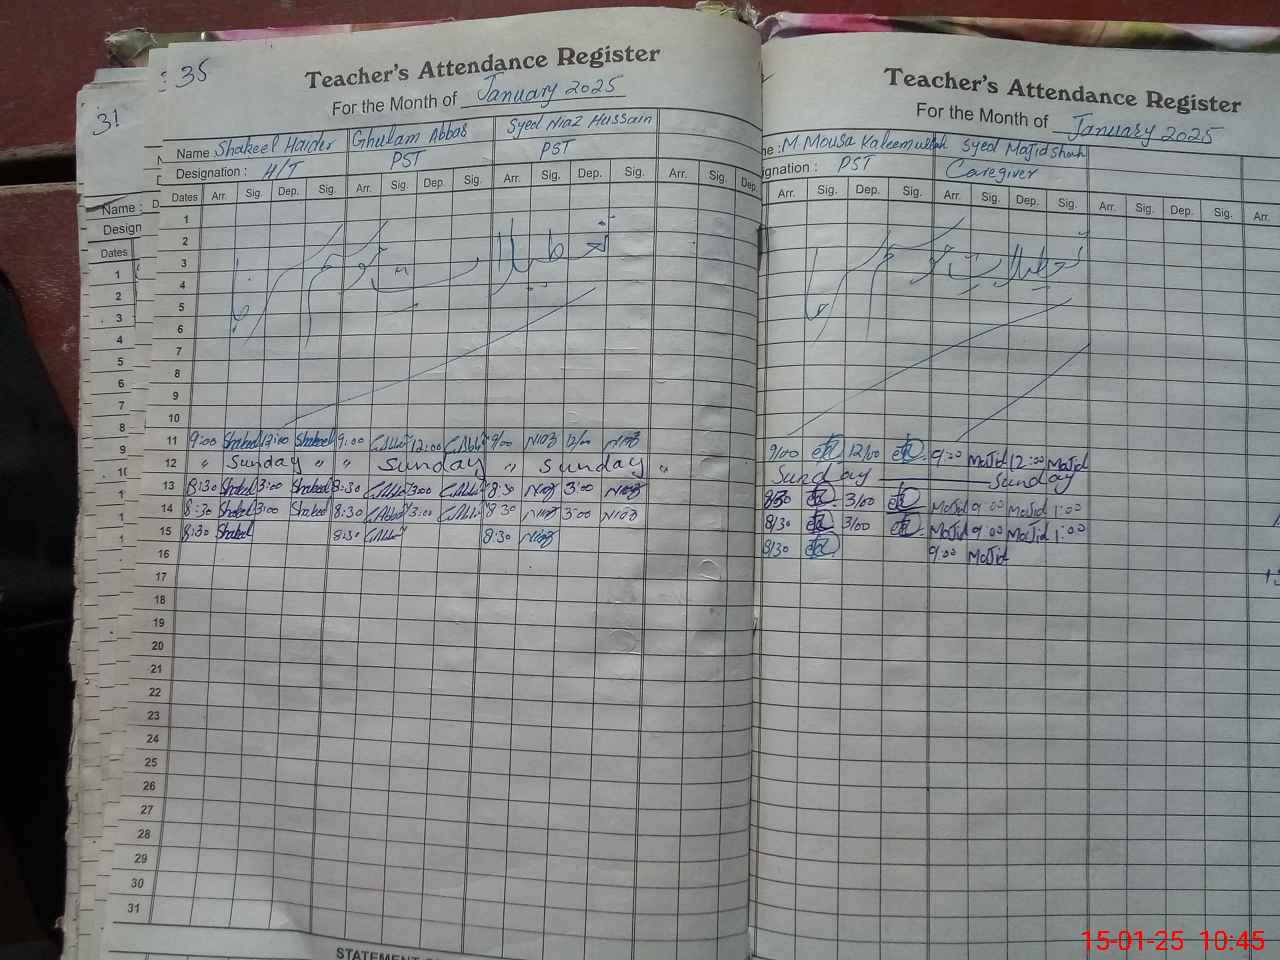 35
Teacher's Attendance Register
For the Month of January 2025
Name Shakeel Haider Ghulam Abbas Syed Niaz Hussain
Designation : H/T PST PST
Dates Arr. Sig. Dep. Sig. Arr. Sig. Dep. Sig. Arr. Sig. Dep. Sig. Arr. Sig. Dep.
1
2
3
4
5
6
7
8
9
10
11 9:00 Shakeel 12:00 Shakeel 9:00 G.Abbas 12:00 G.Abbas 9/00 Niaz 12/00 Niaz
12 " Sunday " " Sunday " Sunday "
13 8:30 Shakeel 3:00 Shakeel 8:30 G.Abbas 3:00 G.Abbas 8:30 Niaz 3:00 Niaz
14 8:30 Shakeel 3:00 Shakeel 8:30 G.Abbas 3:00 G.Abbas 8:30 Niaz 3:00 Niaz
15 8:30 Shakeel 8:30 G.Abbas 8:30 Niaz
16
17
18
19
20
21
22
23
24
25
26
27
28
29
30
31
STATEMENT
Teacher's Attendance Register
For the Month of January 2025
me : M Mousa Kaleemullah Syed Majid Shah
ignation : PST Caregiver
Arr. Sig. Dep. Sig. Arr. Sig. Dep. Sig. Arr. Sig. Dep. Sig. Arr.
تعطیلات
9/00 12/00 9:00 Majid 12:00 Majid
Sunday Sunday
8:30 3/00 Majid 9:00 Majid 1:00
8/30 3/00 Majid 9:00 Majid 1:00
8/30 9:00 Majid
31
Name :
Design
Dates
1
2
3
4
5
6
7
8
9
15-01-25 10:45